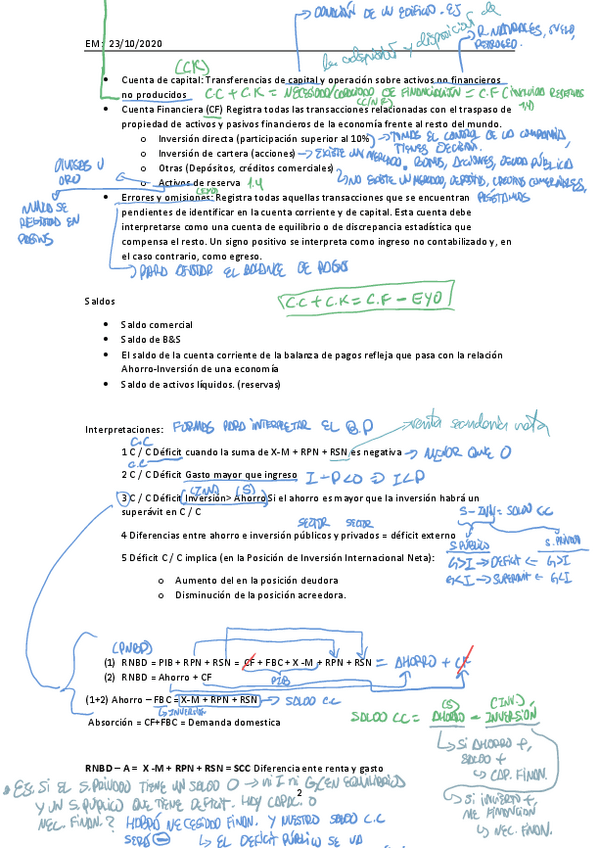 DONACIÓN DE UN EDIFICIO. EJ
la adquisición y disposición de
R. NATURALES, SUELO,
PETROLEO.
EM: 23/10/2020
(CK)
Cuenta de capital: Transferencias de capital y operación sobre activos no financieros
no producidos C.C + C.K = NECESIDAD/CAPACIDAD DE FINANCIACIÓN = C.F (INCLUIDO RESERVAS
(C/N F) 1.4)
Cuenta Financiera (CF) Registra todas las transacciones relacionadas con el traspaso de
propiedad de activos y pasivos financieros de la economía frente al resto del mundo.
o Inversión directa (participación superior al 10%) → TOMAS EL CONTROL DE LA COMPAÑÍA,
TIENES DECISIÓN.
o Inversión de cartera (acciones) → EXISTE UN MERCADO. BONOS, ACCIONES, DEUDA PÚBLICA
o Otras (Depósitos, créditos comerciales) → NO EXISTE UN MERCADO, DEPOSITOS, CREDITOS COMERCIALES,
PRESTAMOS
DIVISAS U
ORO
o Activos de reserva 1.4
(EYO)
Errores y omisiones: Registra todas aquellas transacciones que se encuentran
pendientes de identificar en la cuenta corriente y de capital. Esta cuenta debe
interpretarse como una cuenta de equilibrio o de discrepancia estadística que
compensa el resto. Un signo positivo se interpreta como ingreso no contabilizado y, en
el caso contrario, como egreso.
SE
REGISTRA EN
PARA AJUSTAR EL BALANCE DE PAGOS
Saldos
C.C + C.K = C.F − EYO
Saldo comercial
Saldo de B&S
El saldo de la cuenta corriente de la balanza de pagos refleja que pasa con la relación
Ahorro-Inversión de una economía
Saldo de activos líquidos. (reservas)
Interpretaciones: FORMAS PARA INTERPRETAR EL B.P
renta secundaria neta
C.C
1 C / C Déficit cuando la suma de X-M + RPN + RSN es negativa → MENOR QUE 0
C.C
2 C / C Déficit Gasto mayor que ingreso I − P < 0 ⇒ I < P
(INV) (S)
3 C / C Déficit Inversión> Ahorro Si el ahorro es mayor que la inversión habrá un
superávit en C / C
S − INV = SALDO CC
SECTOR SECTOR
4 Diferencias entre ahorro e inversión públicos y privados = déficit externo
S. PÚBLICO S. PRIVADO
5 Déficit C / C implica (en la Posición de Inversión Internacional Neta):
G>I → DEFICIT ← G>I
G<I → SUPERAVIT ← G<I
o Aumento del en la posición deudora
o Disminución de la posición acreedora.
(PNBD)
(1) RNBD = PIB + RPN + RSN = CF + FBC + X -M + RPN + RSN = AHORRO + CF
(2) RNBD = Ahorro + CF
PIB
(1+2) Ahorro – FBC = X-M + RPN + RSN → SALDO CC
INVERSIÓN
Absorción = CF+FBC = Demanda domestica
(S) (INV.)
SALDO CC = AHORRO − INVERSIÓN
SI AHORRO +,
SALDO +
CAP. FINAN.
SI INVIERTO +,
NE FINANCION
NEC. FINAN.
RNBD – A = X -M + RPN + RSN = SCC Diferencia ente renta y gasto
EJ: SI EL S. PRIVADO TIENE UN SALDO 0 → ni I ni G/ EN EQUILIBRIO
2
Y UN S. PUBLICO QUE TIENE DEFICIT. HAY CAPAC. O
NEC. FINAN.? HABRÁ NECESIDAD FINAN. Y NUESTRO SALDO C.C
SERÁ −
EL DEFICIT PÚBLICO SE VA